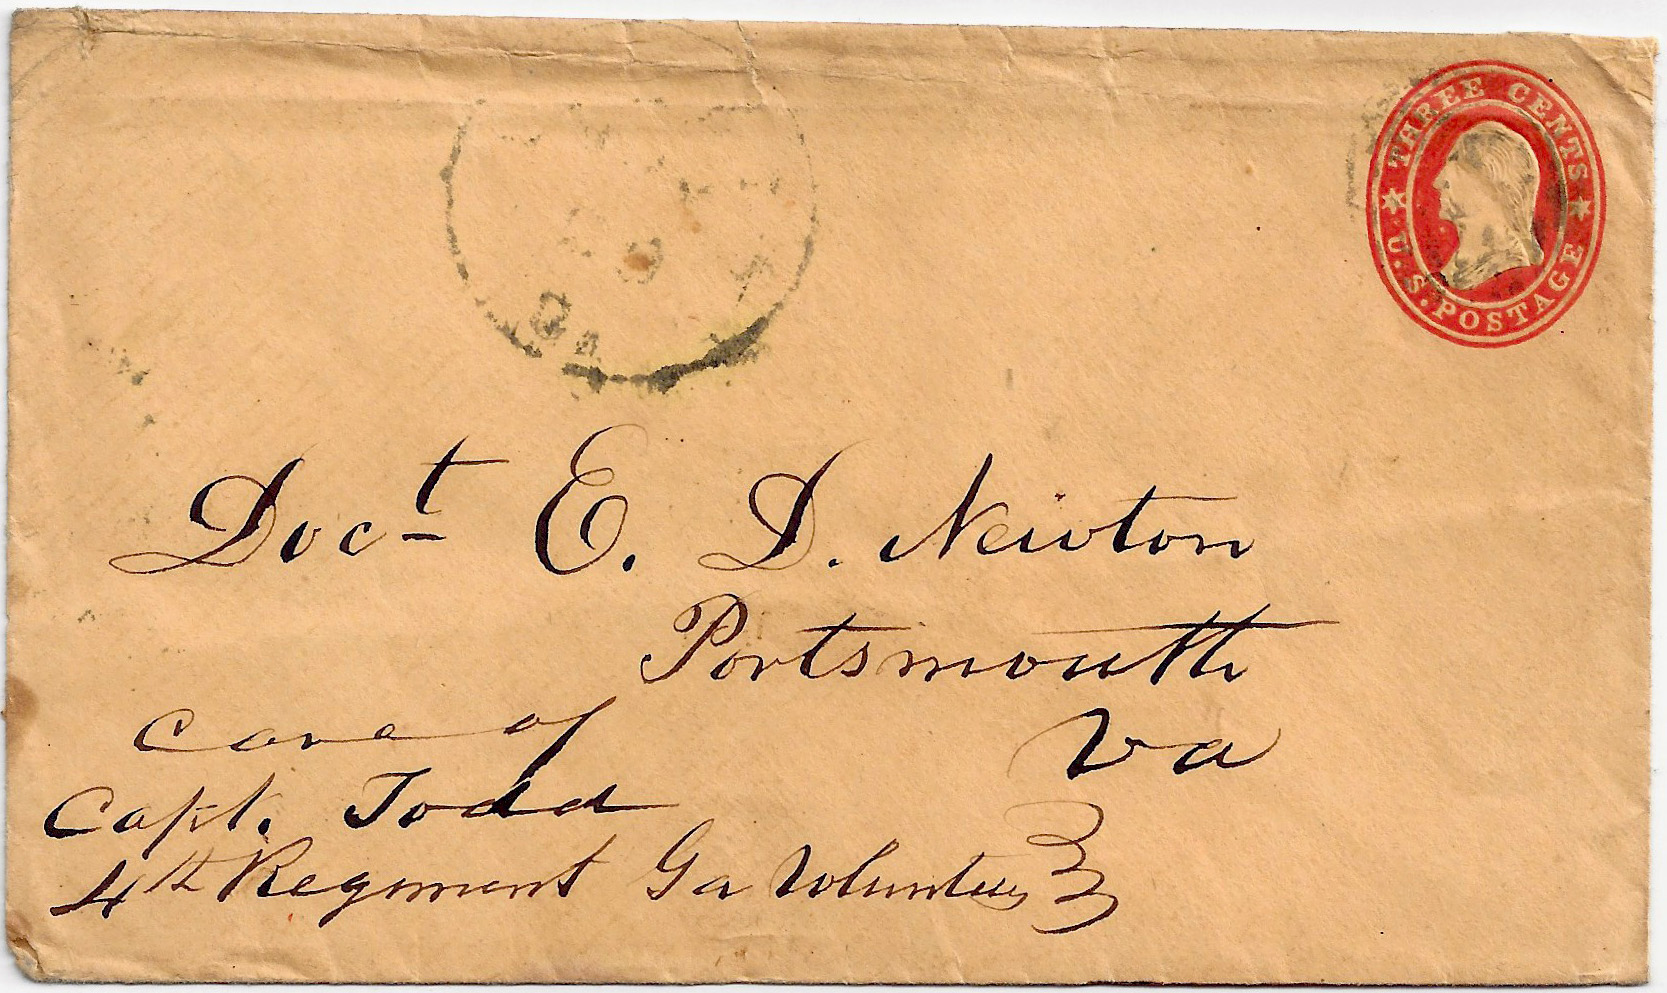 THREE CENTS
U.S. POSTAGE
GA
Doct E. D. Newton
Portsmouth
Va
Care of
Capt. Todd
4th Regiment Ga Volunteers